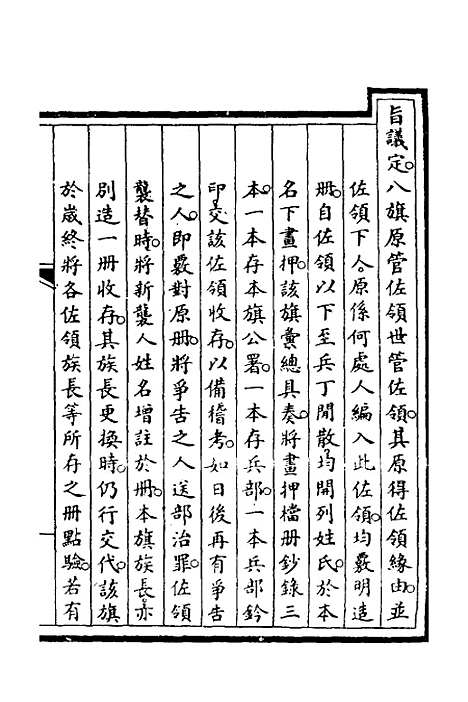 旨議定八旗原管佐領世管佐領其原得佐領緣由並
佐領下人原係何處人編入此佐領均覈明造
册自佐領以下至兵丁閒散均開列姓氏於本
名下畫押該旗彙總具奏將畫押檔册鈔錄三
本一本存本旗公署一本存兵部一本兵部鈐
印交該佐領收存以備稽考如日後再有爭告
之人即覈對原册將爭告之人送部治罪佐領
襲替時將新襲人姓名增註於册本旗族長亦
別造一册收存其族長更換時仍行交代該旗
於歲終將各佐領族長等所存之册點驗若有